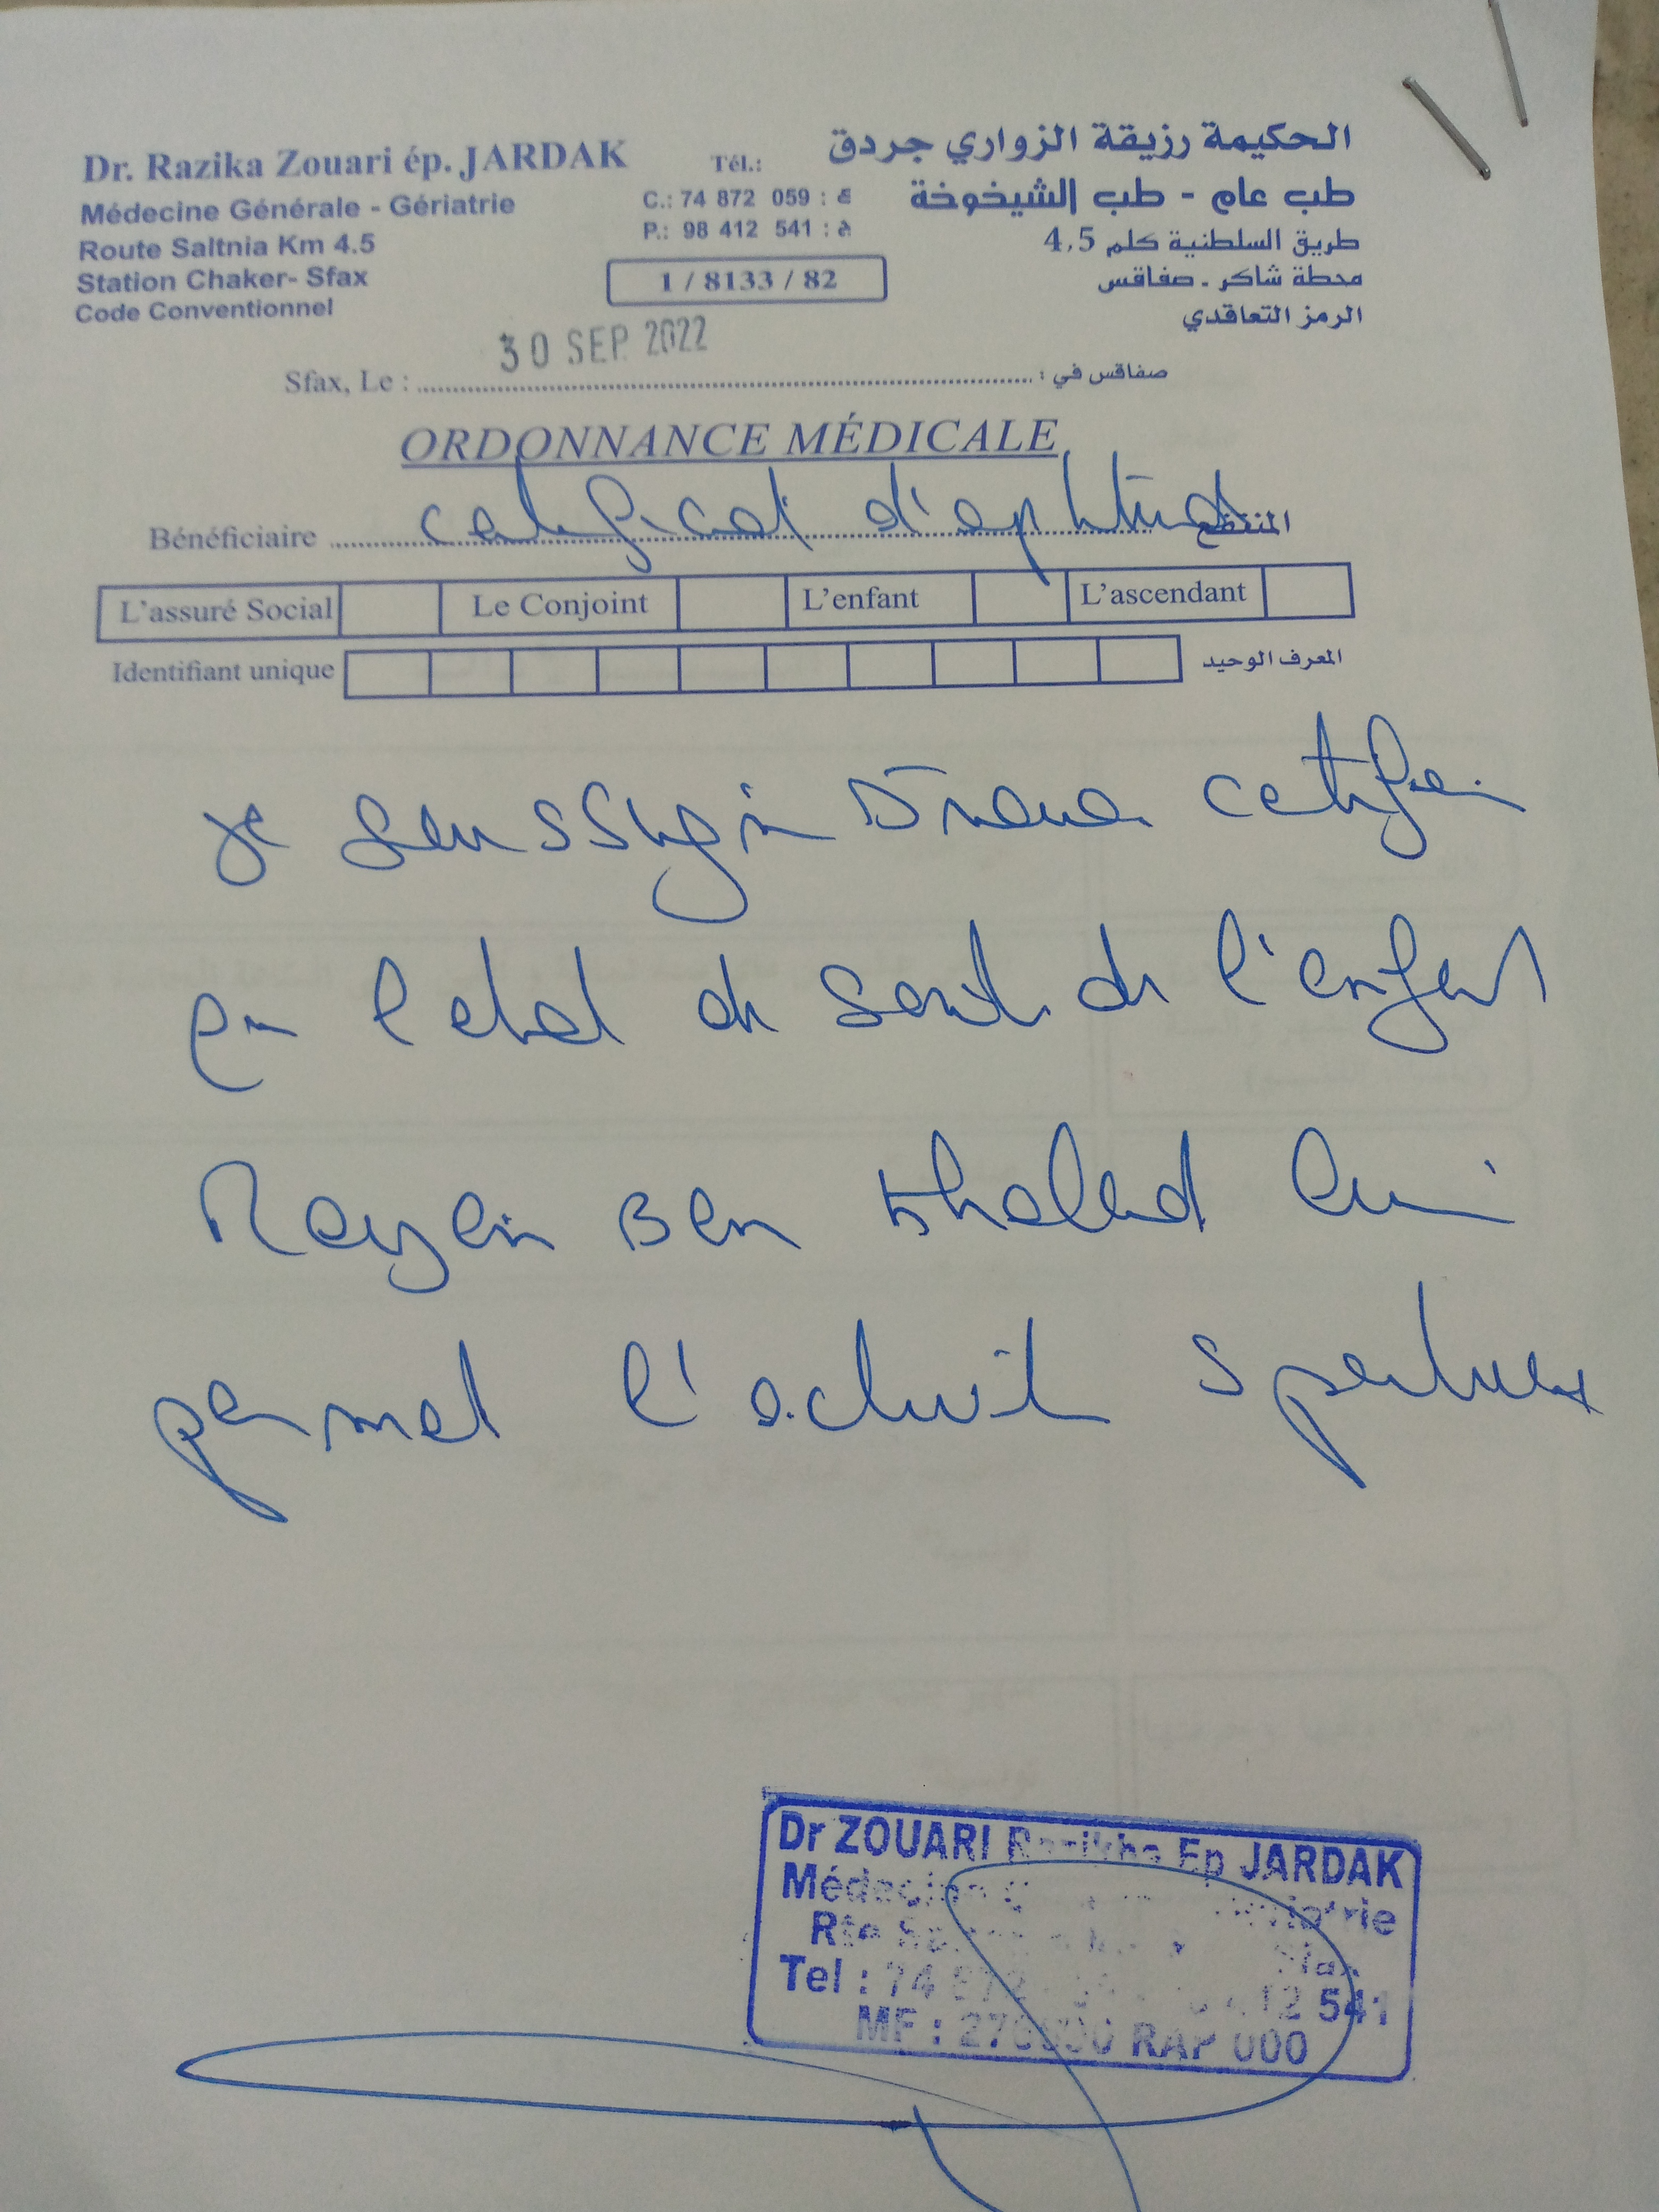 Dr. Razika Zouari ép. JARDAK
Médecine Générale - Gériatrie
Route Saltnia Km 4.5
Station Chaker- Sfax
Code Conventionnel
Tél.:
C.: 74 872 059 : ع
P.: 98 412 541 : خ
1 / 8133 / 82
الحكيمة رزيقة الزواري جردق
طب عام - طب الشيخوخة
طريق السلطنية كلم 4,5
محطة شاكر - صفاقس
الرمز التعاقدي
30 SEP. 2022
Sfax, Le : صفاقس في :
ORDONNANCE MÉDICALE
Bénéficiaire certificat d'aptitud المنتفع
L'assuré Social Le Conjoint L'enfant L'ascendant
Identifiant unique المعرف الوحيد
je soussigné certifie
l'etat de santé de l'enfant
Rayen Ben Khaled lui
permet l'activité sportives
Dr ZOUARI Ep JARDAK
Médecine
Rte
Tel : 74 872 541
MF : RAP 000